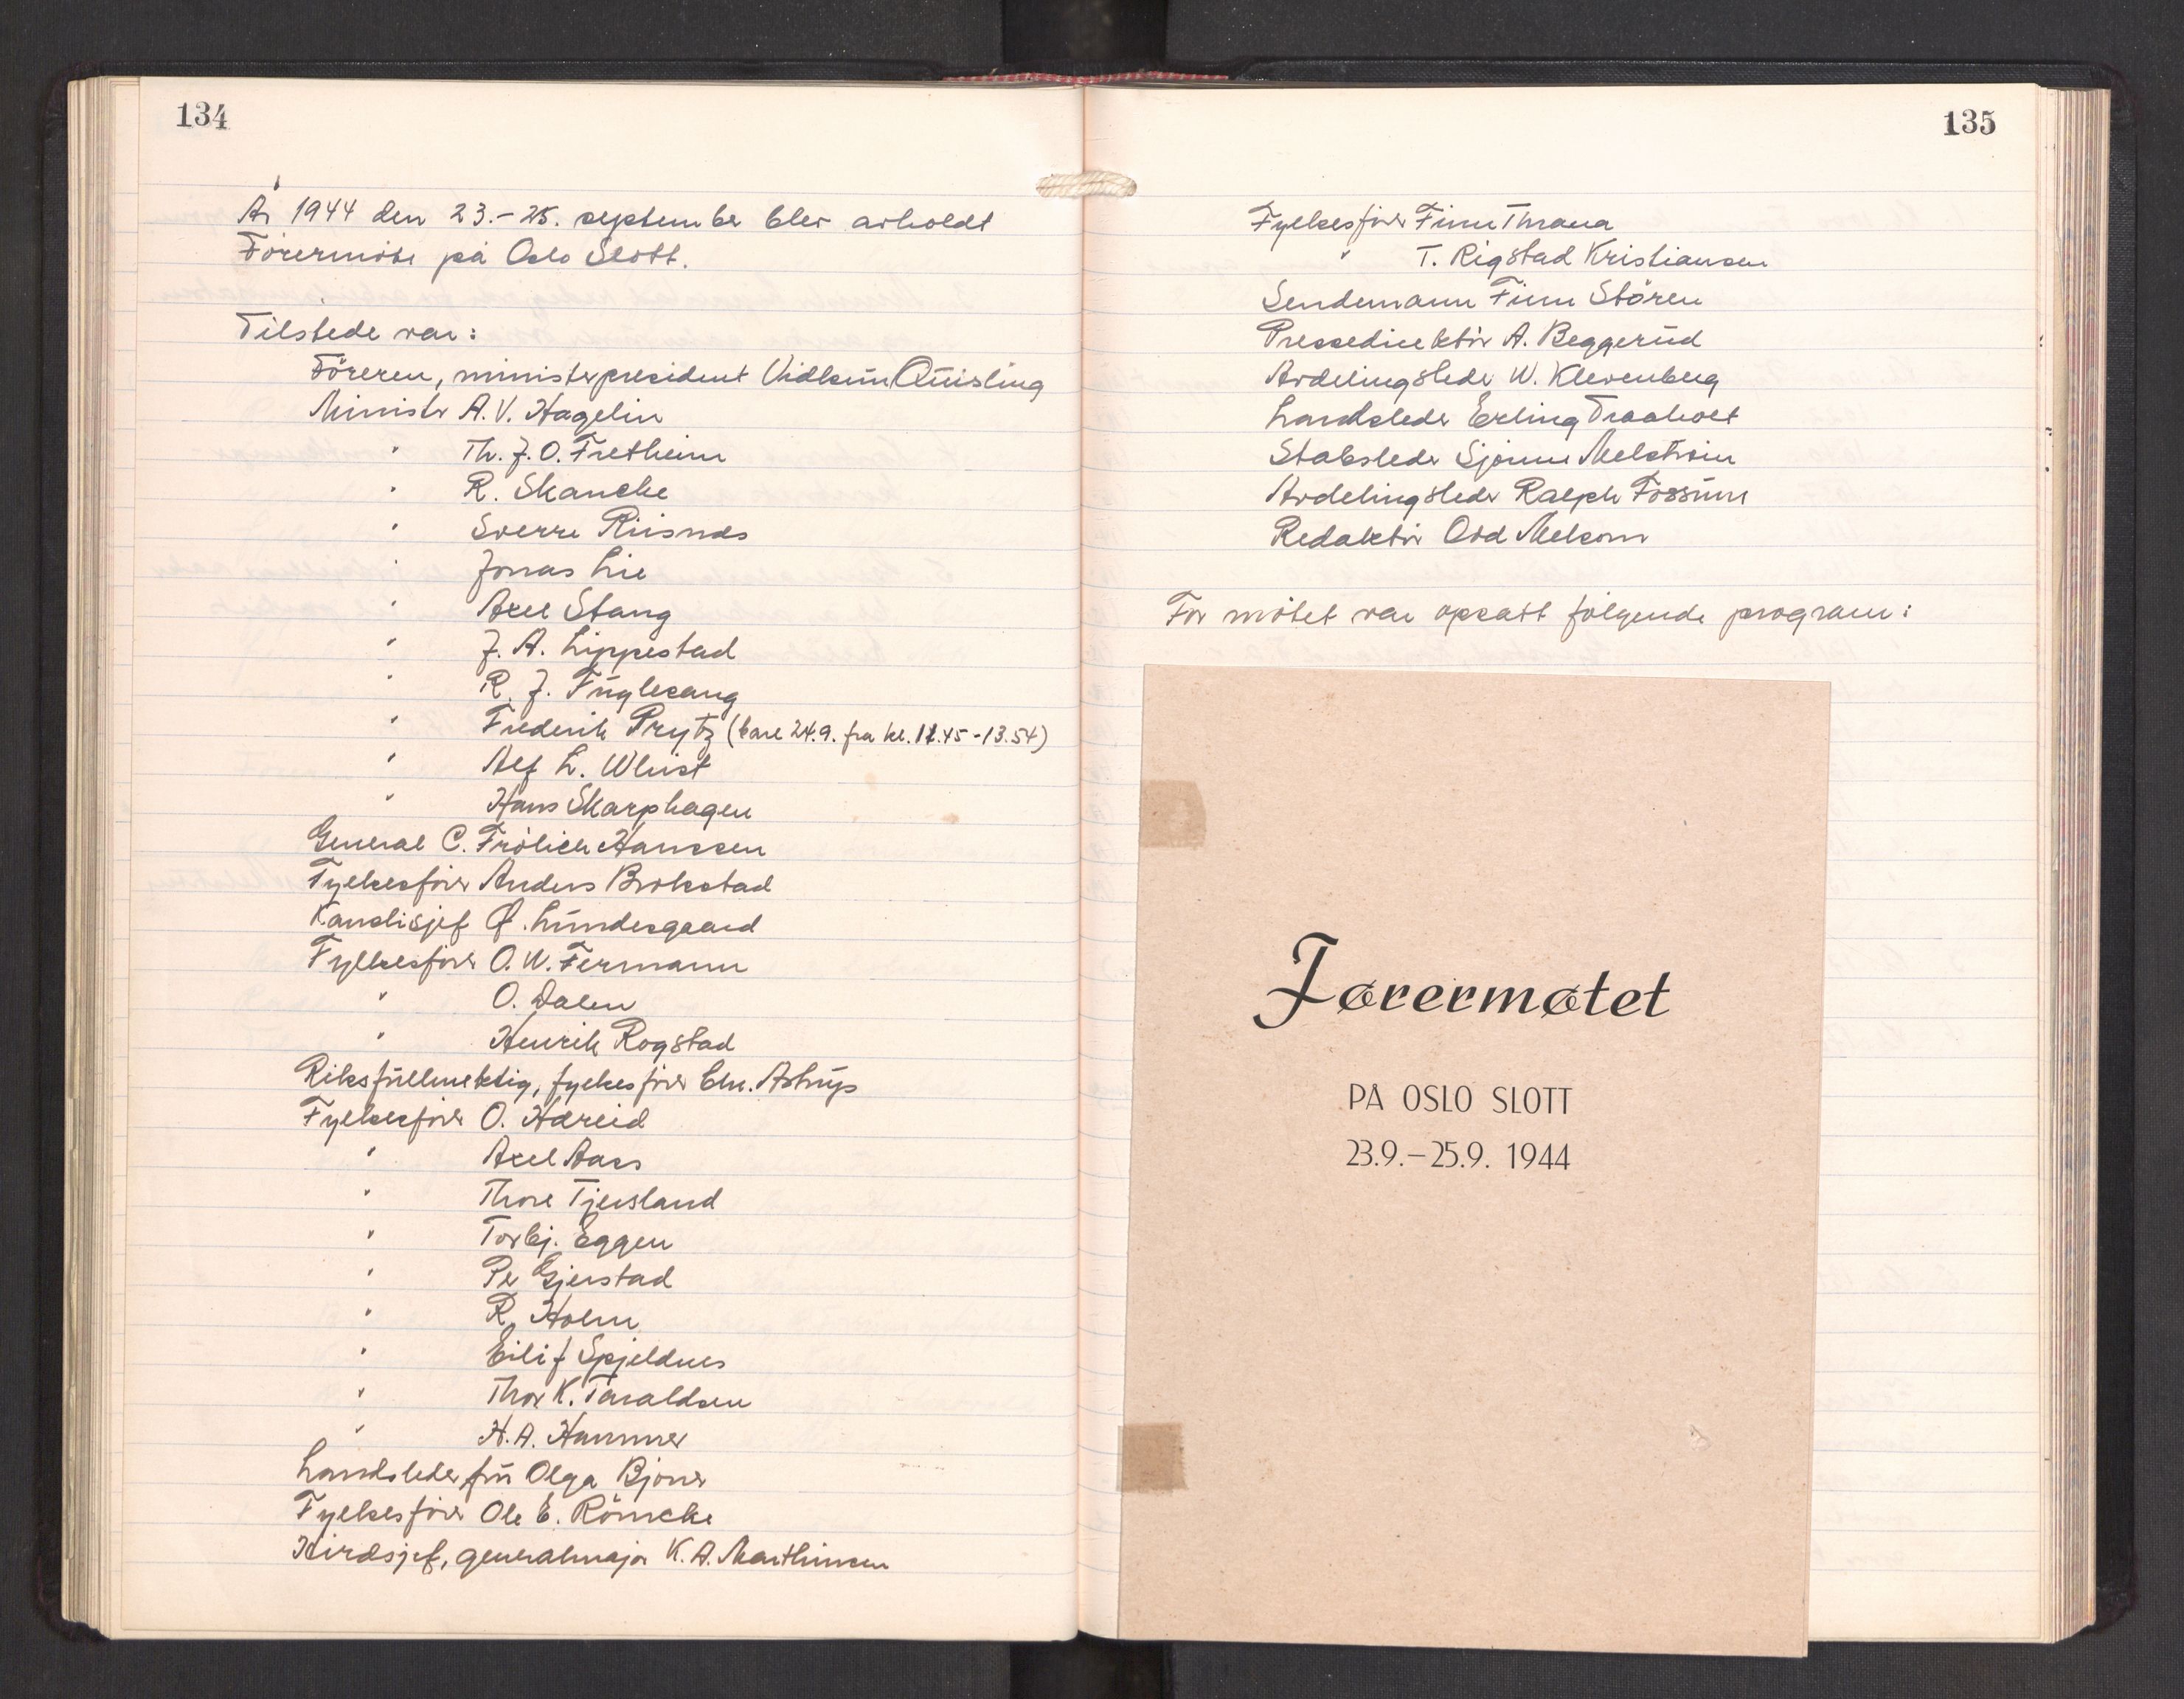 134
År 1944 den 23.-25. september blev avholdt
Förermöte på Oslo Slott.
Tilstede var:
Föreren, ministerpresident Vidkun Quisling
Minister A.V. Hagelin
" Th. J. O. Fretheim
" R. Skancke
" Sverre Riisnæs
" Jonas Lie
" Axel Stang
" J. A. Lippestad
" R. J. Fuglesang
" Frederik Prytz (bare 24.9. fra kl. 11.45-13.54)
" Alf L. Whist
" Hans Skarphagen
General C. Frölich Hanssen
Fylkesförer Anders Brokstad
Kandisjef Ø. Lundesgaard
Fylkesförer O. W. Fermann
" O. Dalen
" Henrik Rogstad
Riksfullmektig, fylkesförer Chr. Astrup
Fylkesförer O. Hareid
" Axel Aass
" Thore Tjersland
" Torbj. Eggen
" Per Gjerstad
" R. Holm
" Eilif Spjeldnes
" Thor K. Taraldsen
" H. A. Hammer
Landsleder fru Olga Bjoner
Fylkesförer Ole E. Römcke
Hirdsjef, generalmajor K. A. Marthinsen
135
Fylkesförer Finn Thrana
" T. Rigstad Kristiansen
Sendemann Finn Stören
Pressedirektör A. Beggerud
Avdelingsleder W. Klevenberg
Landsleder Erling Traaholt
Stabsleder Sjönne Melström
Avdelingsleder Ralph Fossum
Redaktör Odd Melsom
For mötet var opsatt fölgende program:
Førermøtet
PÅ OSLO SLOTT
23.9.–25.9. 1944